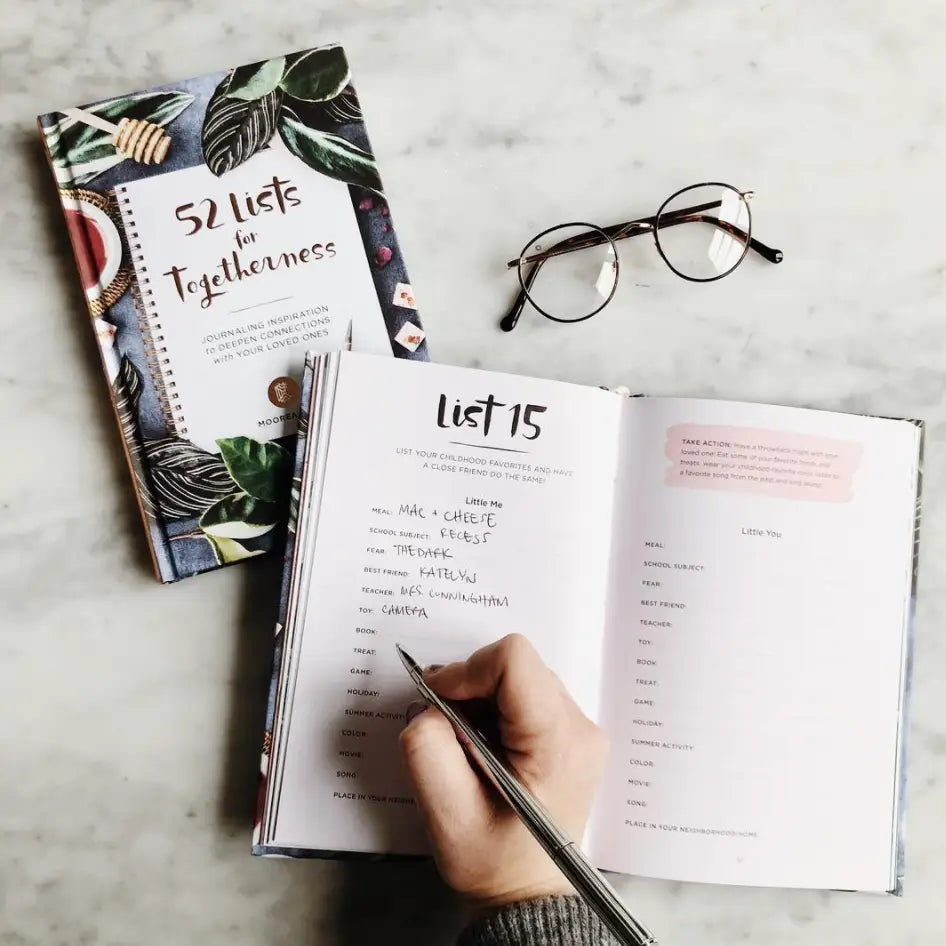 52 Lists
for
Togetherness
JOURNALING INSPIRATION
to DEEPEN CONNECTIONS
with YOUR LOVED ONES
MOOREA
List 15
LIST YOUR CHILDHOOD FAVORITES AND HAVE
A CLOSE FRIEND DO THE SAME!
Little Me
MEAL: MAC + CHEESE
SCHOOL SUBJECT: RECESS
FEAR: THE DARK
BEST FRIEND: KATELYN
TEACHER: MRS. CUNNINGHAM
TOY: CAMERA
BOOK:
TREAT:
GAME:
HOLIDAY:
SUMMER ACTIVITY
COLOR:
MOVIE:
SONG:
PLACE IN YOUR NEIGHB
TAKE ACTION: Have a throwback night with your
loved one! Eat some of your favorite foods and
treats, wear your childhood favorite color, listen to
a favorite song from the past and sing along!
Little You
MEAL:
SCHOOL SUBJECT:
FEAR:
BEST FRIEND:
TEACHER:
TOY:
BOOK:
TREAT:
GAME:
HOLIDAY:
SUMMER ACTIVITY:
COLOR:
MOVIE:
SONG:
PLACE IN YOUR NEIGHBORHOOD/HOME: